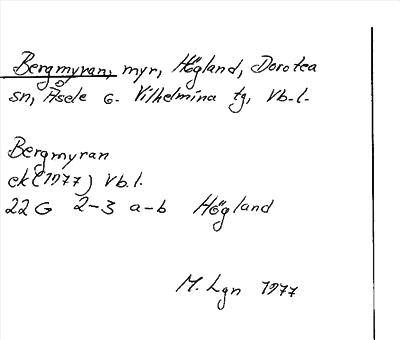 Bergmyran, myr, Högland, Dorotea
sn, Åsele o. Vilhelmina tg, Vb.l.
Bergmyran
ek (1977) Vb.l.
22 G 2-3 a-b Högland
M. Lgn 1977